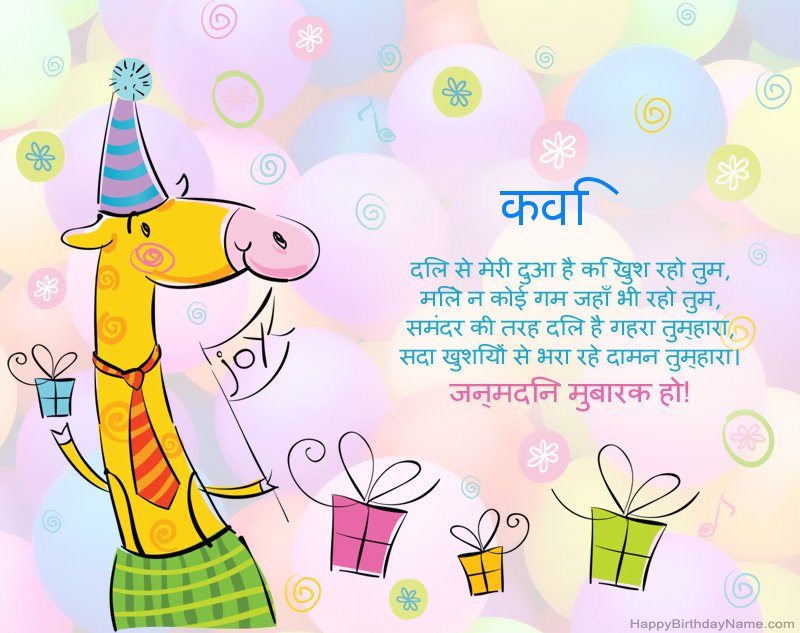 कवि
दिल से मेरी दुआ है कि खुश रहो तुम,
मिले न कोई गम जहाँ भी रहो तुम,
समंदर की तरह दिल है गहरा तुम्हारा,
सदा खुशियों से भरा रहे दामन तुम्हारा।
जन्मदिन मुबारक हो!
joy
HappyBirthdayName.com